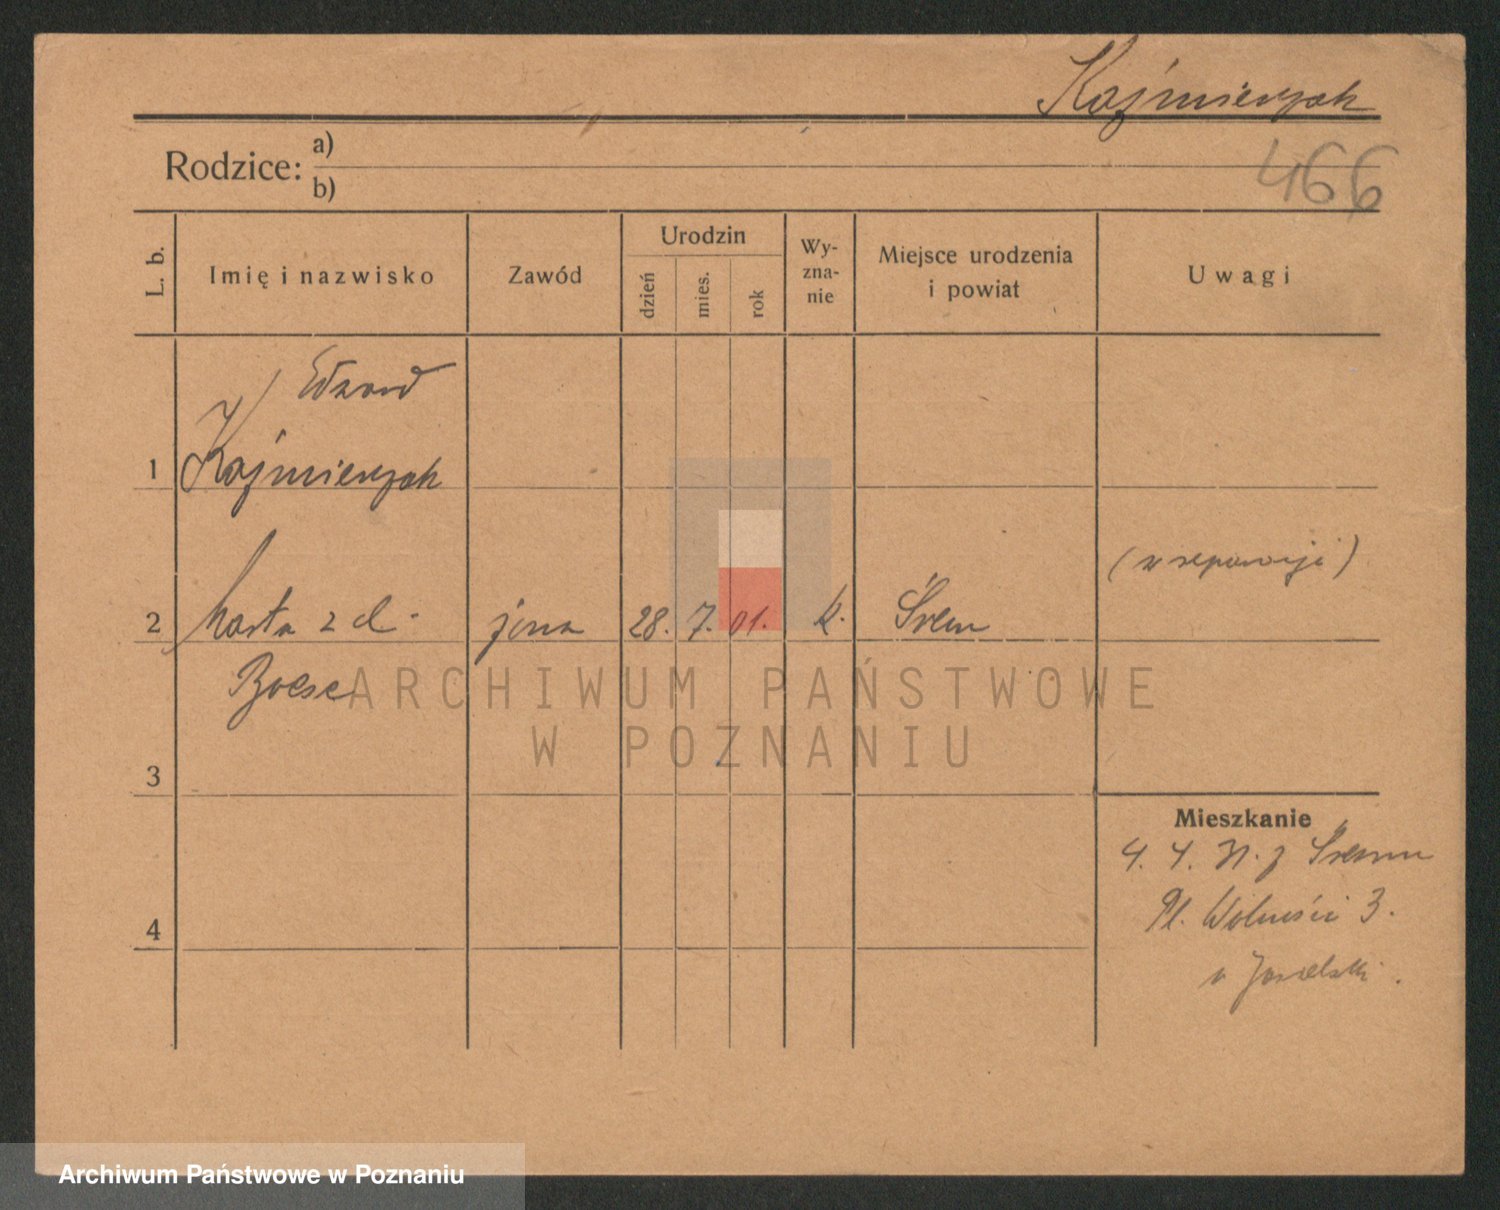 Kaźmierczak
466
Rodzice: a)
b)
L. b.
Imię i nazwisko
Zawód
Urodzin
dzień
mies.
rok
Wy-
zna-
nie
Miejsce urodzenia
i powiat
Uwagi
Edward
1 Kaźmierczak
(w separacji)
2 Marta z d. żona 28. 7. 01. k. Śrem
Boese
ARCHIWUM PAŃSTWOWE
W POZNANIU
3
Mieszkanie
4. 4. 31. z Śremu
Pl. Wolności 3.
4
Archiwum Państwowe w Poznaniu